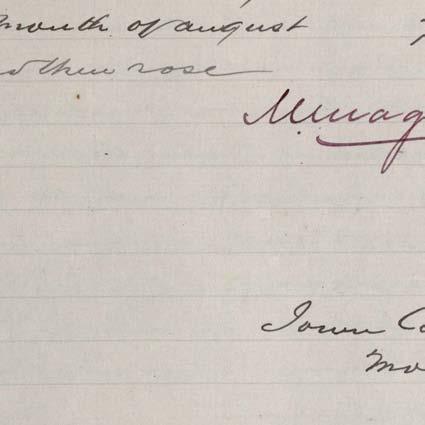 month of august
then rose
Town Co
Mo